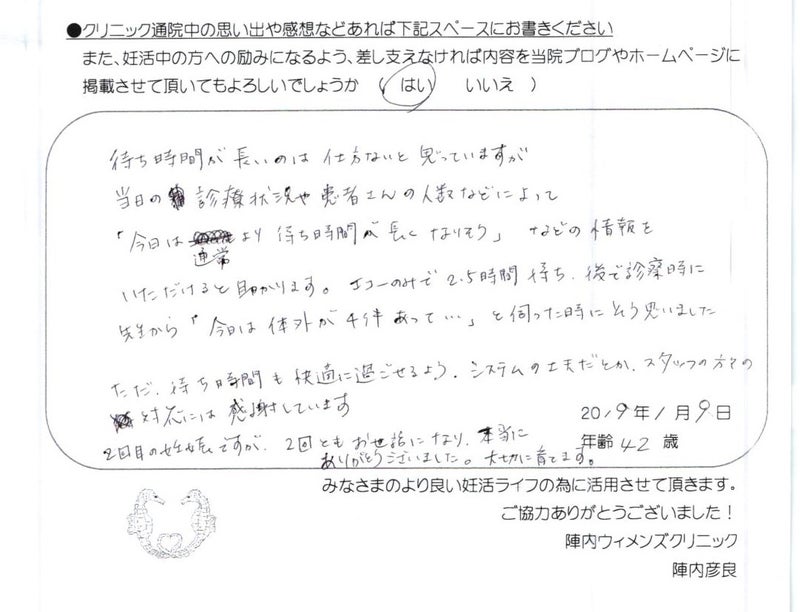 ●クリニック通院中の思い出や感想などあれば下記スペースにお書きください
また、妊活中の方への励みになるよう、差し支えなければ内容を当院ブログやホームページに
掲載させて頂いてもよろしいでしょうか（ はい　いいえ ）
待ち時間が長いのは仕方ないと思っていますが
当日の診療状況や患者さんの人数などによって
「今日は通常より待ち時間が長くなりそう」などの情報を
いただけると助かります。エコーのみで2.5時間待ち、後で診察時に
先生から「今日は体外が4件あって…」と伺った時にそう思いました
ただ、待ち時間も快適に過ごせるよう、システムの工夫だとか、スタッフの方々の
対応には感謝しています
2回目の妊娠ですが、2回ともお世話になり、本当に
ありがとうございました。大切に育てます。
2019年1月9日
年齢42歳
みなさまのより良い妊活ライフの為に活用させて頂きます。
ご協力ありがとうございました！
陣内ウィメンズクリニック
陣内彦良